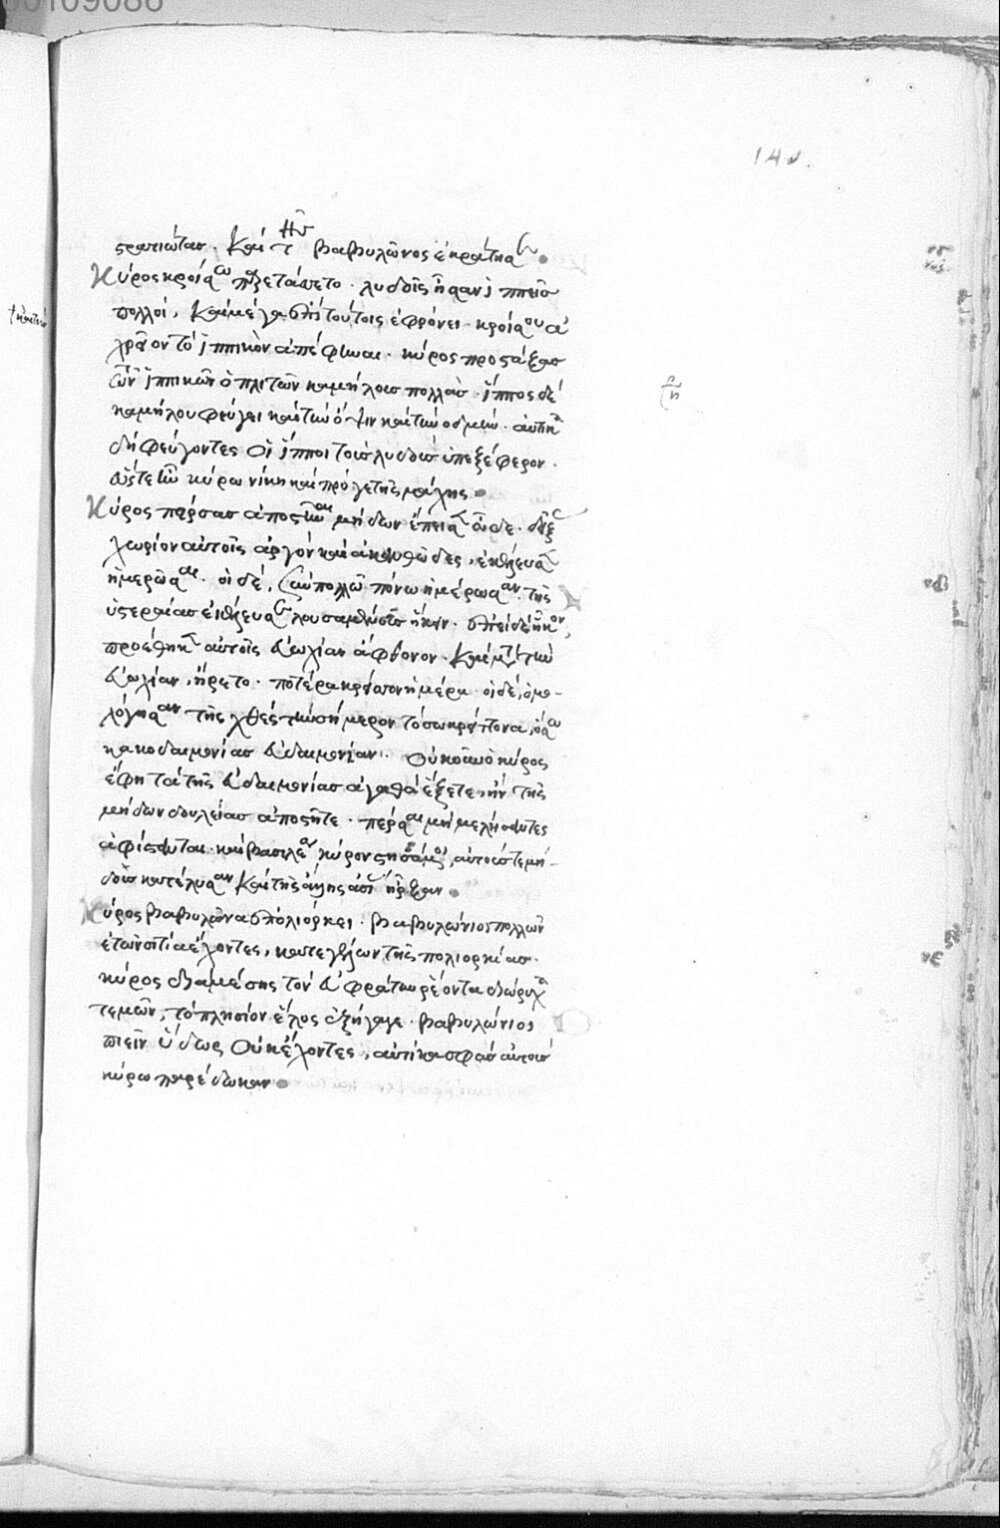 στρατιώτας. καὶ τῆς βαβυλῶνος ἐκράτησεν.
Κύρος κροίσω παρετάσσετο. λυδοῖς ἦσαν ἱππεῖς
πολλοὶ, καὶ μέγα ἐπὶ τούτοις ἐφρόνει κροίσου ἀ
χρεῖον τὸ ἱππικὸν ἀπέφηναι. κύρος προτάξας
τῶν ἱππικῶν ὁπλιτῶν καμήλους πολλὰς. ἵππος δὲ
καμήλου φεύγει καὶ τὴν ὄψιν καὶ τὴν ὀσμήν. αὐτίκα
δὴ φεύγοντες οἱ ἵπποι τοὺς λυδοὺς ὑπεξέφερον.
ὥστε ἦν κύρω νίκη καὶ πρό γε τῆς μάχης
Κύρος πέρσας ἀποστῆναι μήδων ἔπεισεν ὧδε. δείξας
χωρίον αὐτοῖς ἀργὸν καὶ ἀκανθῶδες, ἐκέλευσεν
ἡμερῶσαι. οἱ δὲ, σὺν πολλῶ πόνω ἡμέρωσαν. τῆς
ὑστεραίας ἐκέλευσεν λουσαμένους ἥκειν. ἐπεὶ δὲ ἧκον,
προέθηκεν αὐτοῖς εὐωχίαν ἄφθονον. καὶ μετὰ τὴν
εὐωχίαν, ἤρετο. ποτέρα κρείττων ἡμέρα. οἱ δὲ, ὁμο-
λόγησαν τῆς χθὲς τὴν σήμερον τόσω κρείττονα, ὅσω
κακοδαιμονίας εὐδαιμονίαν. Οὐκοῦν ὁ κύρος
ἔφη τὰ τῆς εὐδαιμονίας ἀγαθὰ ἕξετε, ἢν τῆς
μήδων δουλείας ἀποστῆτε. πέρσαι μὴ μελήσαντες
ἀφίστανται. καὶ βασιλέα κύρον στησάμενοι, αὐτούς τε μή-
δους κατέλυσαν καὶ τῆς ἄλλης ἀσίας ἦρξαν
Κύρος βαβυλῶνα ἐπολιόρκει. βαβυλώνιοι πολλῶν
ἐτῶν σιτία ἔχοντες, κατεγέλων τῆς πολιορκίας.
κύρος διὰ μέσης τὸν εὐφράτην ῥέοντα διώρυχα
τεμὼν, τὸ πλησίον ἕλος ἐξήγαγε. βαβυλώνιοι
πιεῖν ὕδωρ οὐκ ἔχοντες, αὐτίκα σφᾶς αὐτοὺς
κύρω παρέδωκαν